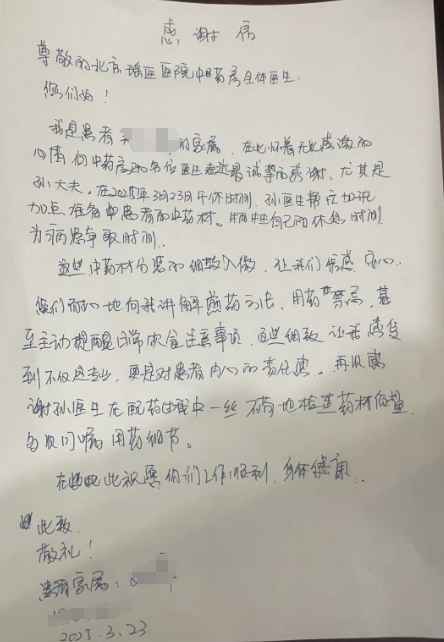 感谢信
尊敬的北京瑶医医院中药房全体医生.
您们好!
我是患者 的家属, 在此怀着无比感激的
心情, 向中药房的各位医生表达最诚挚的感谢. 尤其是
孙大夫. 在2025年3月23日午休时间. 孙医生帮忙加班
加点准备患者的中药材. 牺牲自己的休息时间
为病患争取时间.
这些中药材分装的细致入微, 让我们倍感安心.
您们耐心地向我讲解煎药方法, 用药禁忌, 甚
至主动提醒日常饮食注意事项, 这些细致让我感受
到不仅是专业, 更是对患者内心的责任感。再次感
谢孙医生在配药过程中一丝不苟地检查药材质量,
叮嘱用药细节。
在此祝愿你们工作顺利, 身体健康.
此致
敬礼!
患者家属:
2025.3.23